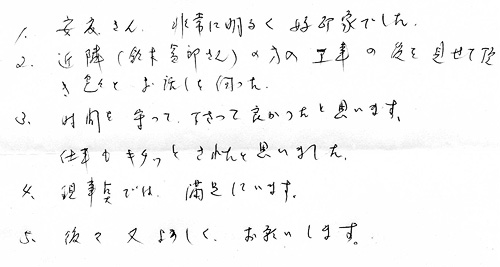 1. 安友さん、非常に明るく好印象でした。
2. 近隣(鈴木 さん)の方の工事の後を見せて頂
き色々とお話しを伺った。
3. 時間を守って下さって良かったと思います。
仕事もキチッとされたと思いました。
4. 現事点では、満足しています。
5. 後々又よろしく、お願いします。